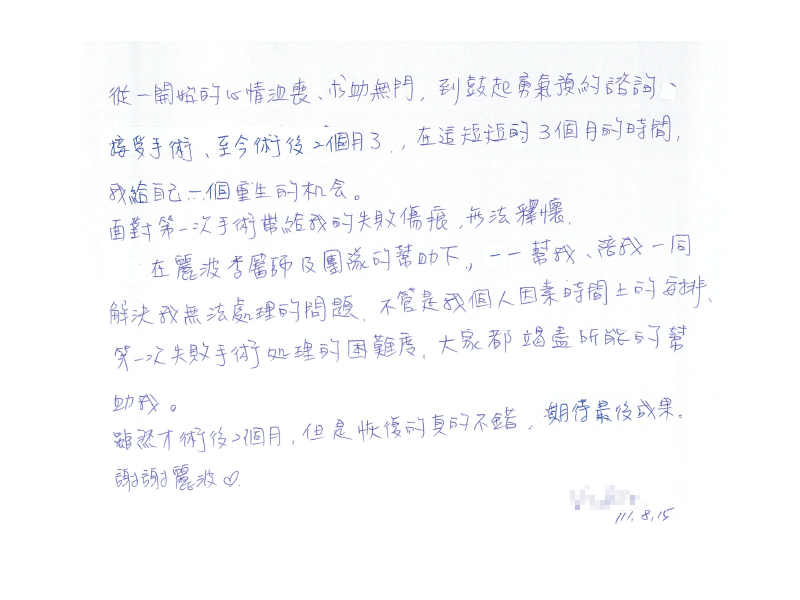 從一開始的心情沮喪、求助無門，到鼓起勇氣預約諮詢、
接受手術、至今術後2個月了.，在這短短的3個月的時間，
我給自己一個重生的机会。
面對第一次手術帶給我的失敗傷痕，無法釋懷.
在麗波李醫師及團隊的幫助下,，一一幫我、陪我一同
解決我無法處理的問題. 不管是我個人因素時間上的安排、
第一次失敗手術处理的困難度，大家都竭盡所能的幫
助我。
雖然才術後2個月，但是恢復的真的不錯，期待最後成果。
謝謝麗波♡.
111.8.15